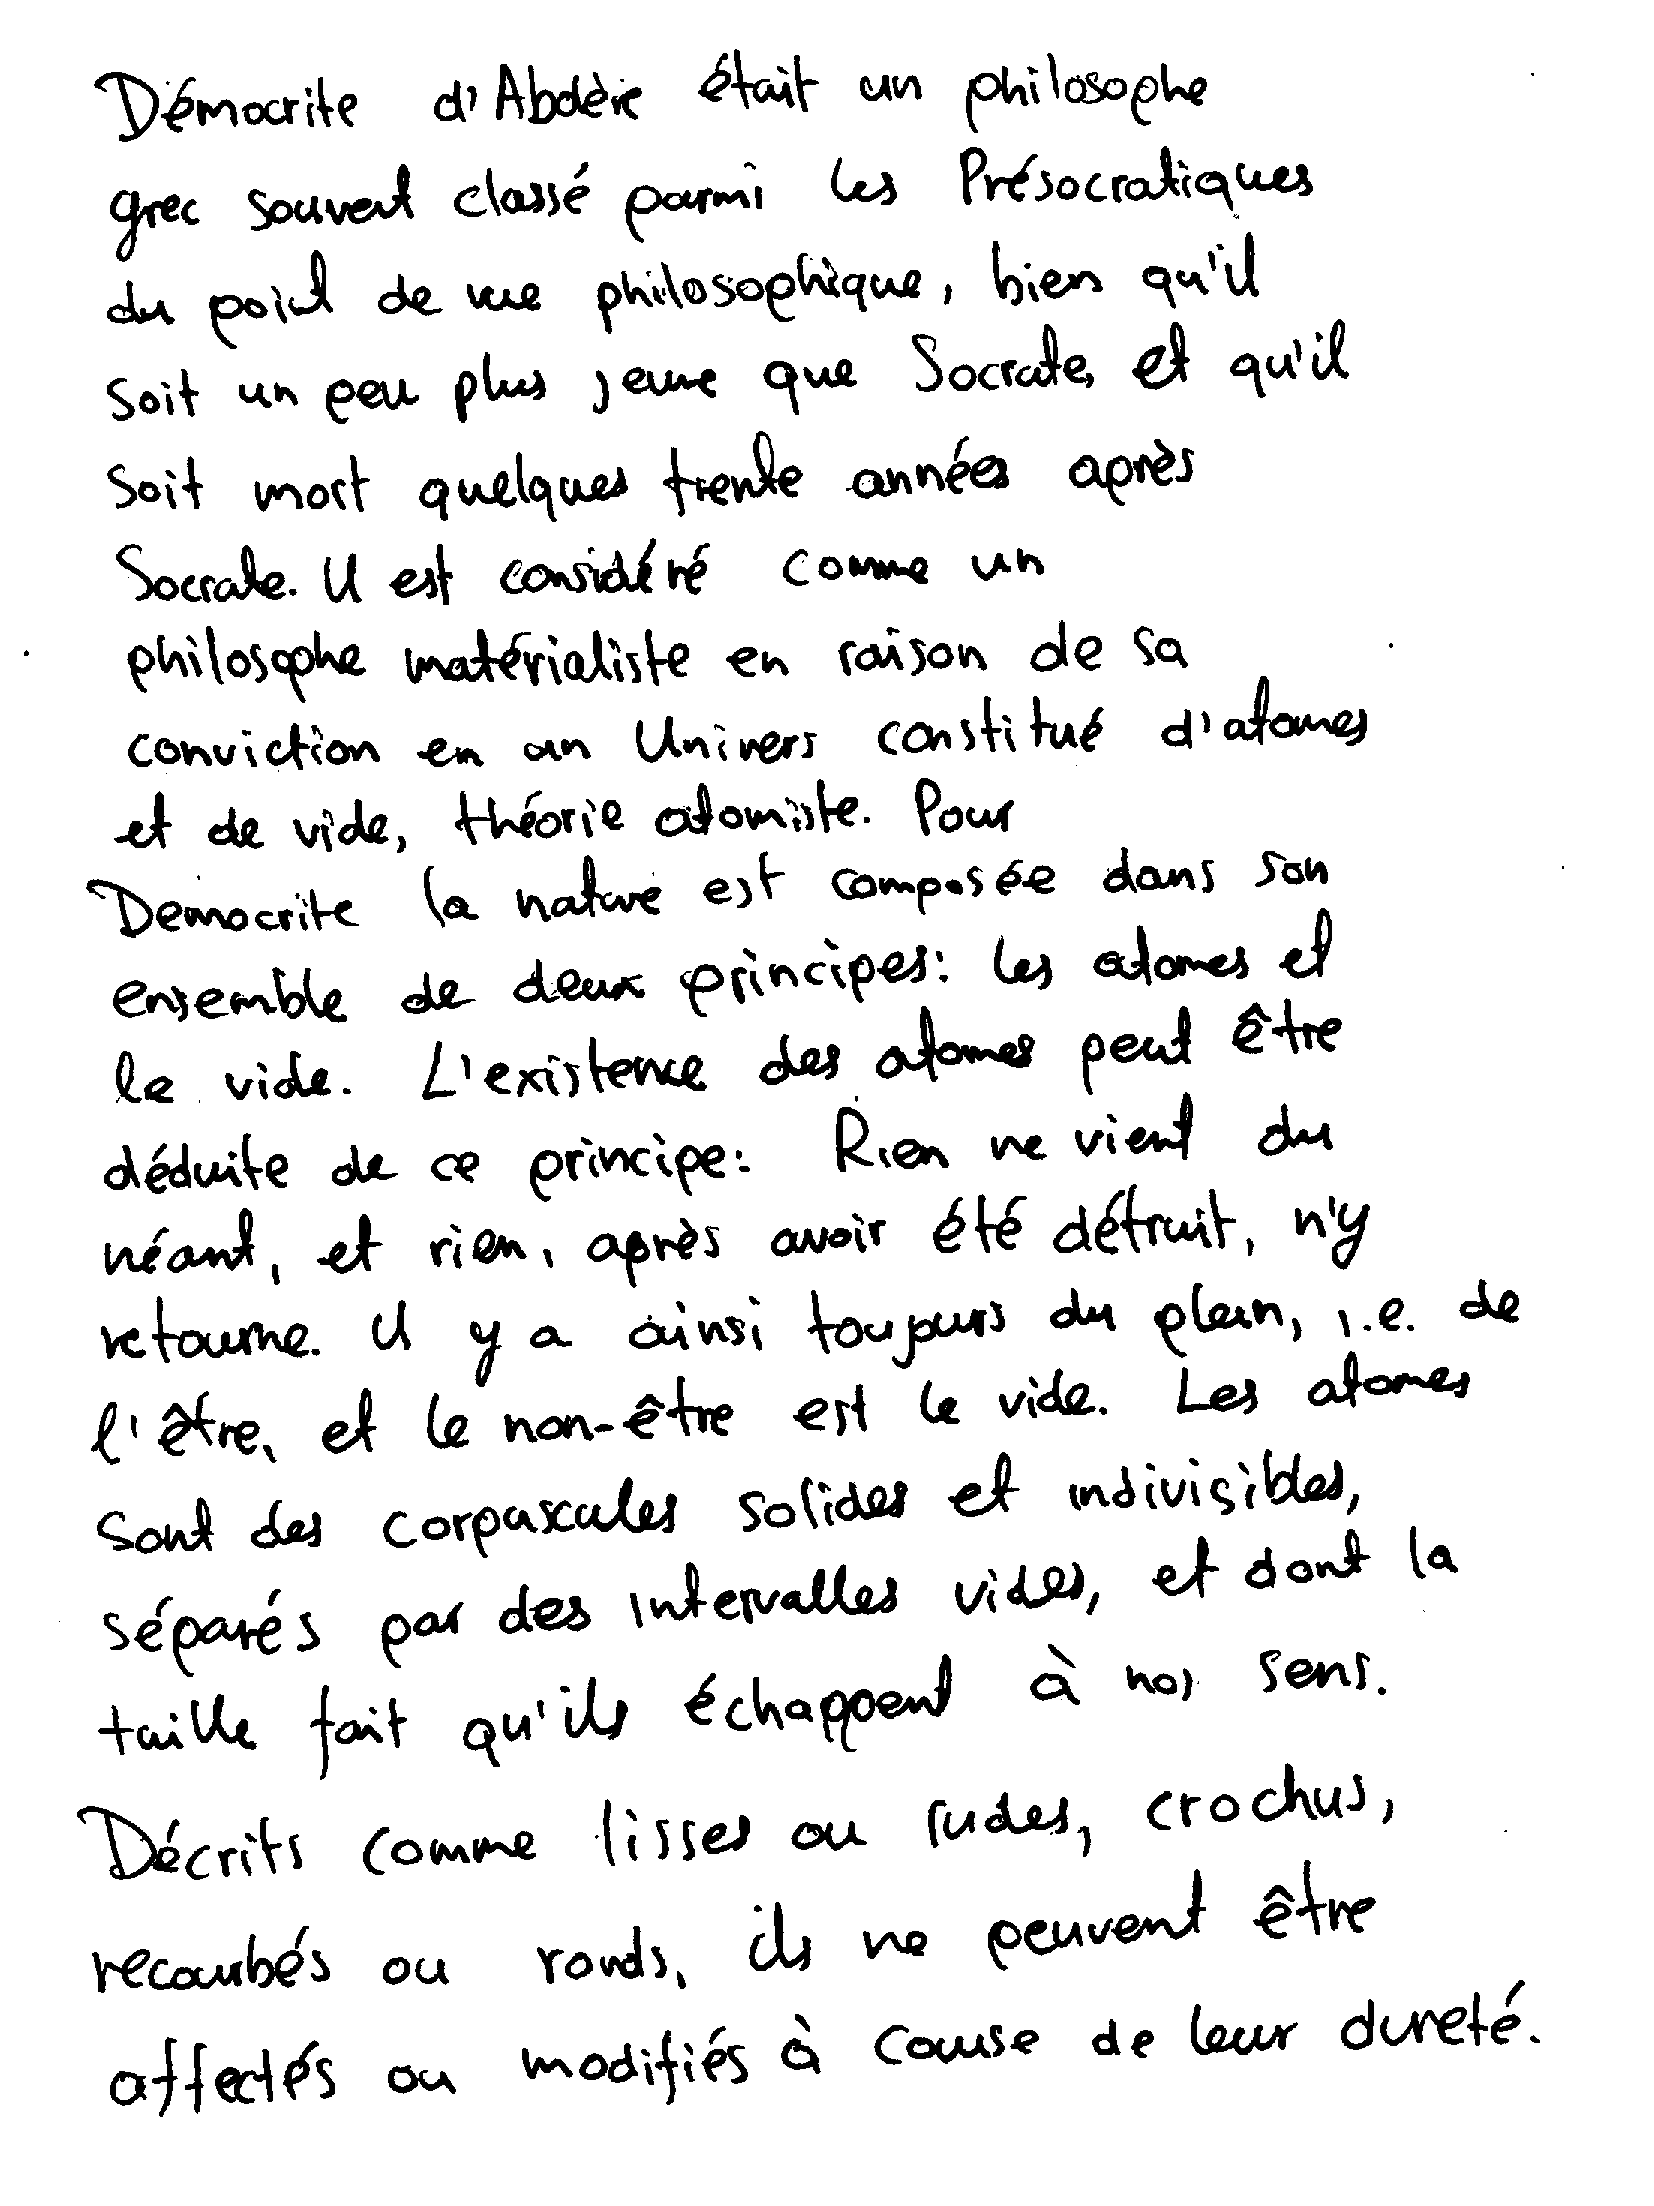 Démocrite d'Abdère était un philosophe
grec souvent classé parmi les Présocratiques
du point de vue philosophique, bien qu'il
soit un peu plus jeune que Socrate, et qu'il
soit mort quelques trente années après
Socrate. Il est considéré comme un
philosophe matérialiste en raison de sa
conviction en un Univers constitué d'atomes
et de vide, théorie atomiste. Pour
Democrite la nature est composée dans son
ensemble de deux principes: les atomes et
le vide. L'existence des atomes peut être
déduite de ce principe: Rien ne vient du
néant, et rien, après avoir été détruit, n'y
retourne. Il y a ainsi toujours du plein, i.e. de
l'être, et le non-être est le vide. Les atomes
sont des corpuscules solides et indivisibles,
séparés par des intervalles vides, et dont la
taille fait qu'ils échappent à nos sens.
Décrits comme lisses ou rudes, crochus,
recourbés ou ronds, ils ne peuvent être
affectés ou modifiés à cause de leur dureté.